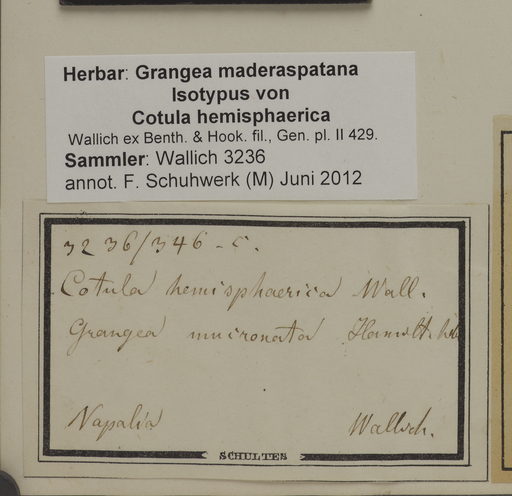 Herbar: Grangea maderaspatana
Isotypus von
Cotula hemisphaerica
Wallich ex Benth. & Hook. fil., Gen. pl. II 429.
Sammler: Wallich 3236
annot. F. Schuhwerk (M) Juni 2012
3236/346-c.
Cotula hemisphaerica Wall.
Grangea mucronata Hamilt.
Napalia Wallich.
SCHULTES